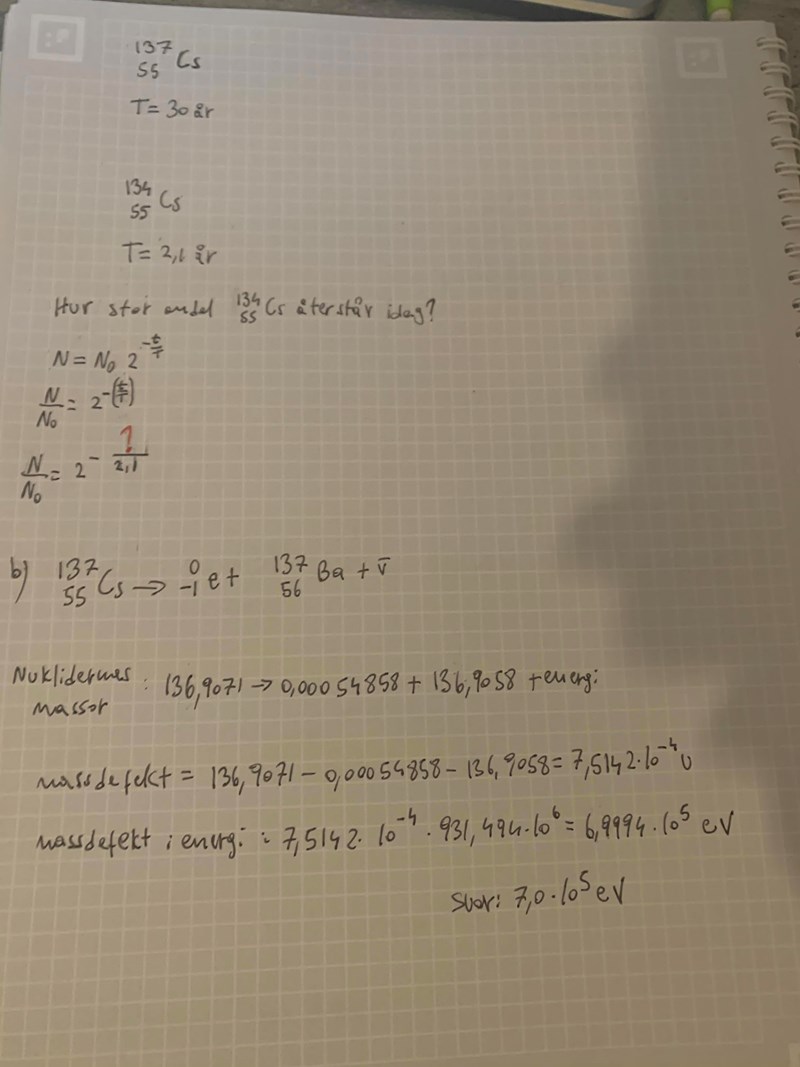 ¹³⁷₅₅Cs
T = 30 år
¹³⁴₅₅Cs
T = 2,1 år
Hur stor andel ¹³⁴₅₅Cs återstår idag?
N = N₀ 2^(-t/T)
N/N₀ = 2^-(t/T)
N/N₀ = 2^- ?/2,1
b) ¹³⁷₅₅Cs → ⁰₋₁e + ¹³⁷₅₆Ba + ν̄
Nuklidernas massor : 136,9071 → 0,00054858 + 136,9058 + energi
massdefekt = 136,9071 - 0,00054858 - 136,9058 = 7,5142·10⁻⁴ u
massdefekt i energi : 7,5142·10⁻⁴ · 931,494·10⁶ = 6,9994·10⁵ eV
svar: 7,0·10⁵ eV